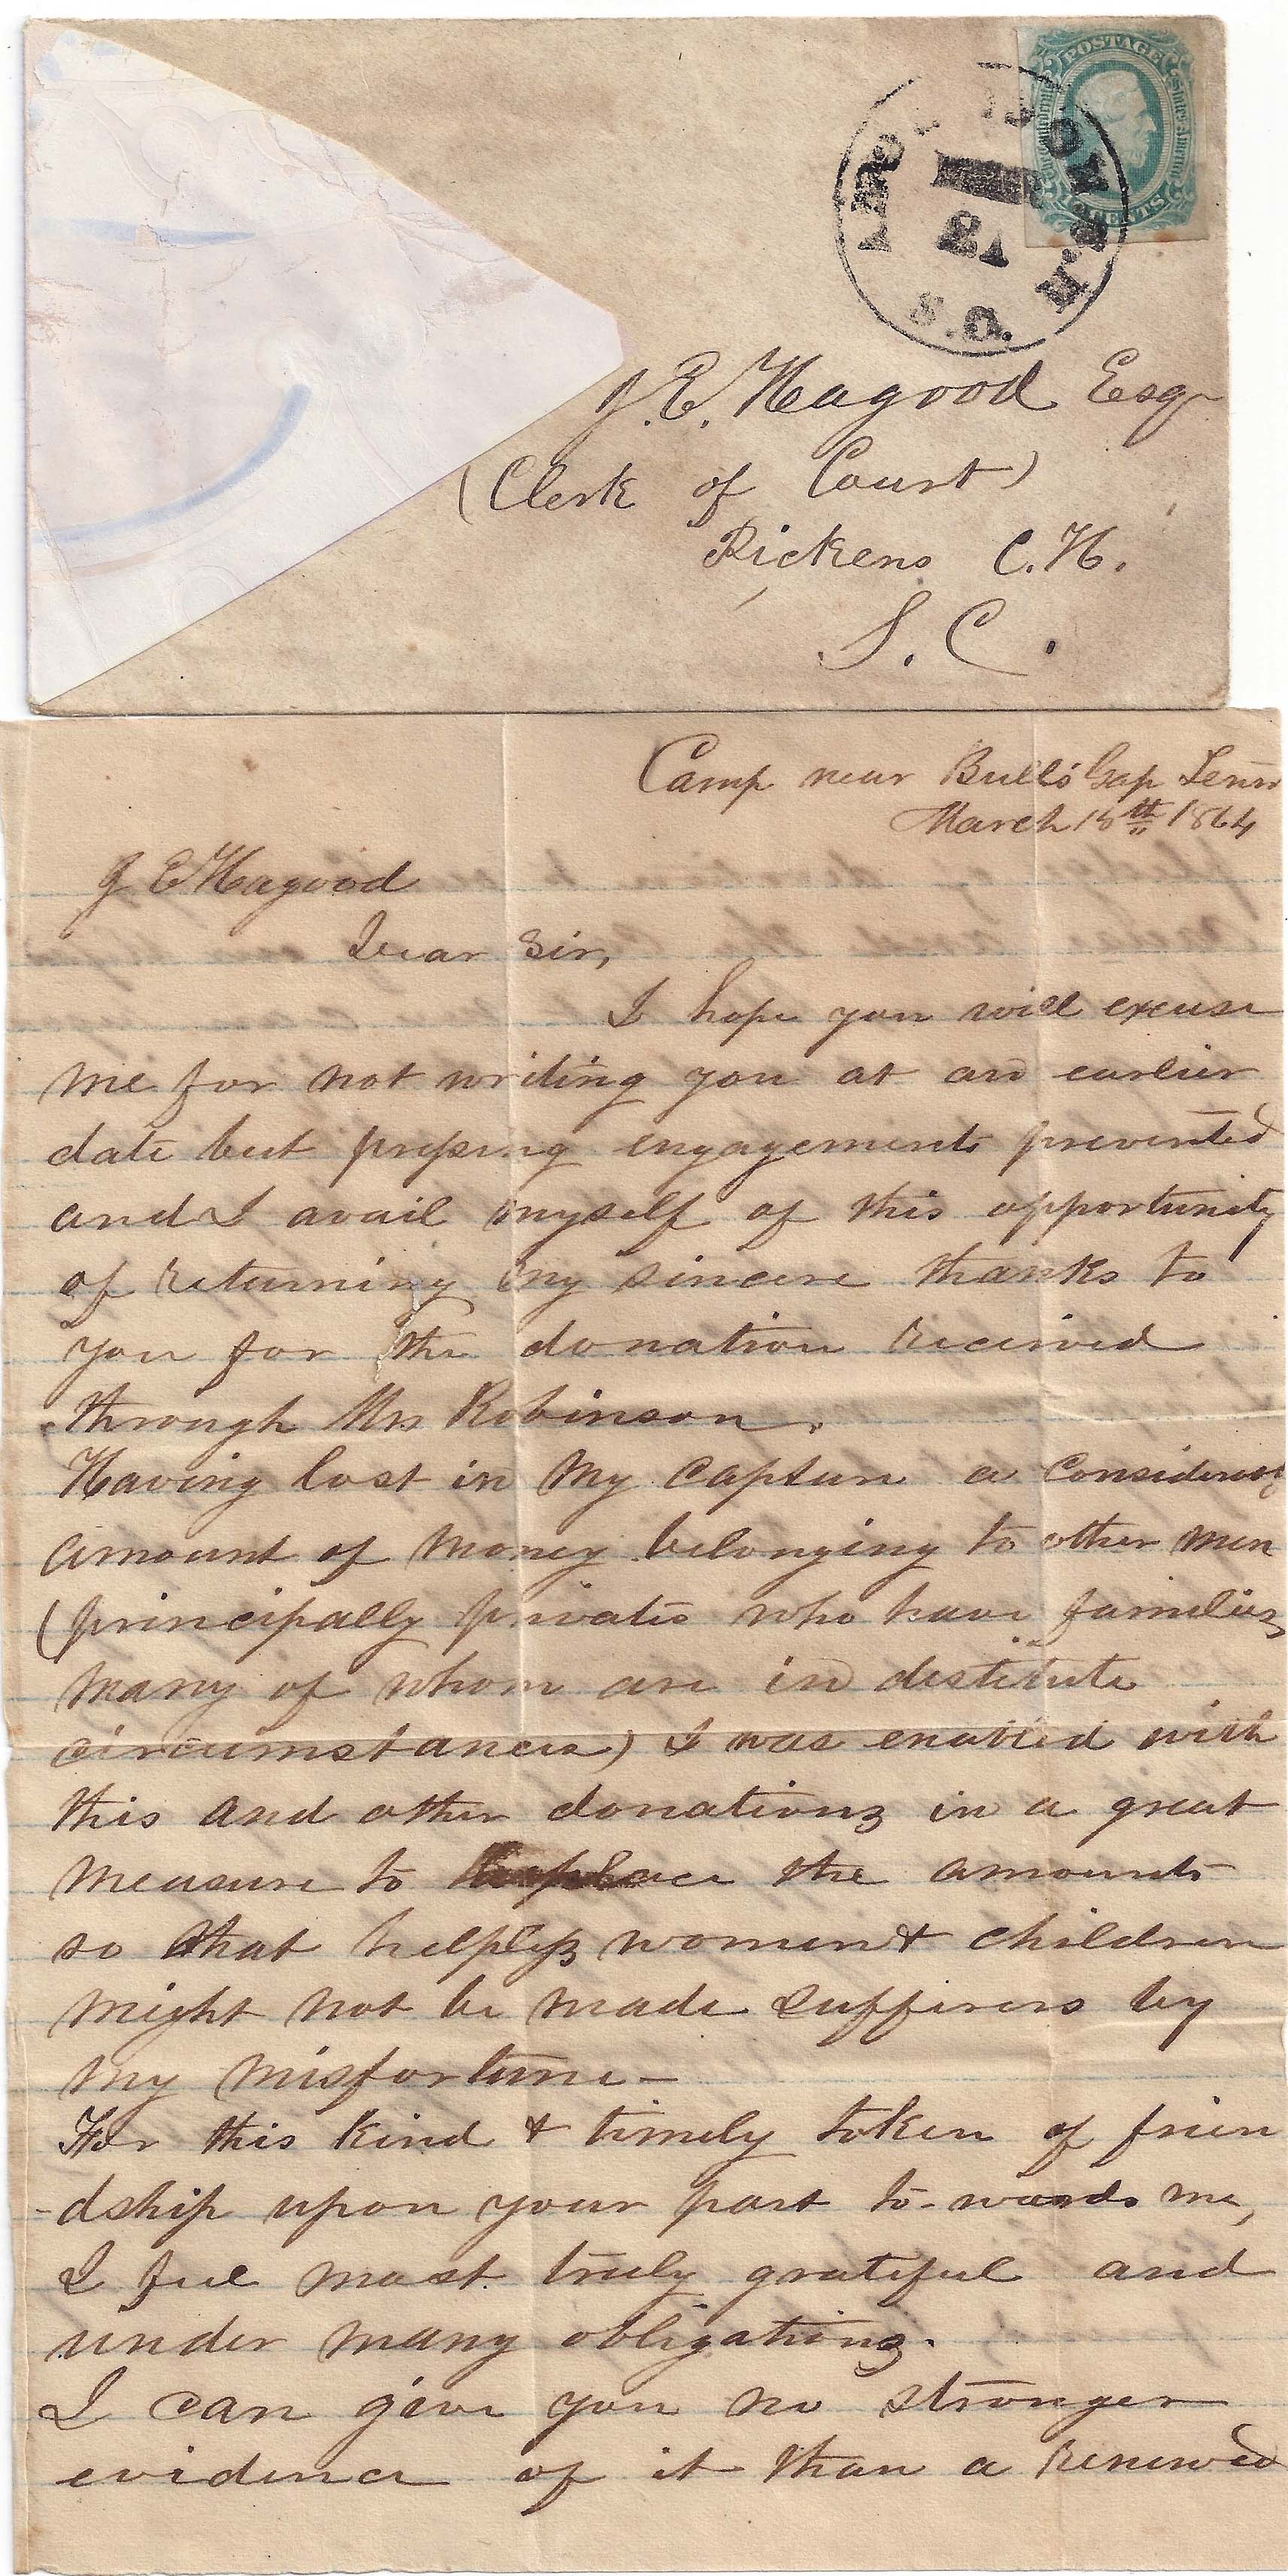 POSTAGE
The Confederate
States of America
10 CENTS
ANDERSON C.H.
21
S.C.
J. E. Hagood Esqr
(Clerk of Court)
Pickens C.H.
S. C.
Camp near Bull's Gap Tenn
March 18th 1864
J E Hagood
Dear Sir,
I hope you will excuse
me for not writing you at an earlier
date but pressing engagements prevented
and I avail myself of this opportunity
of returning my sincere thanks to
you for the donation received
through Mr Robinson.
Having lost in my capture a
amount of money belonging to other men
(principally privates who have families
many of whom are in destitute
circumstances) I was enabled with
this and other donations in a great
measure to replace the amounts
so that helpless women & children
might not be made sufferers by
my misfortune—
For this kind & timely token of frien
-dship upon your part to-wards me,
I feel most truly grateful and
under many obligations.
I can give you no stronger
evidence of it than a renewed